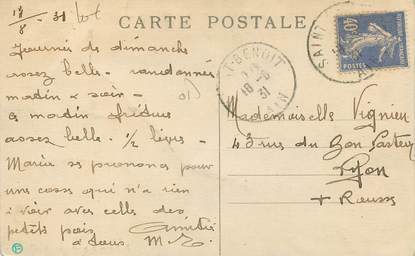 18/8 - 31
CARTE POSTALE
Journée de dimanche
assez belle - randonnées
matin & soir -
Ce matin
assez belle. 1/2
Marie se prononce pour
une cosse qui n'a rien
à voir avec celle des
petits pois. Amitiés
à tous. M.
ST-BENOIT
18-8
31
AIN
SAINT
AIN
40c
POSTES
Mademoiselle Vignieu
43 rue du Bon Pasteur
Lyon
+ Rousse